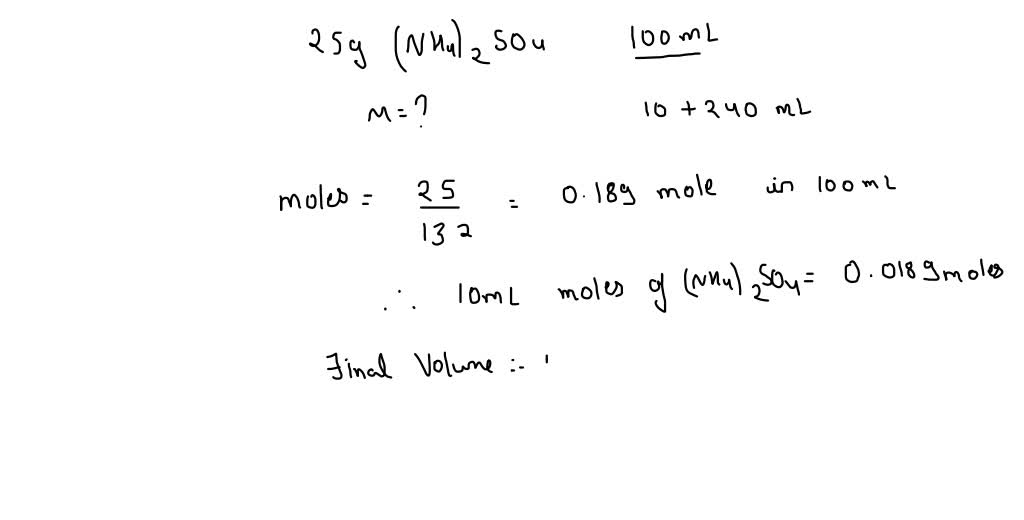 25g (NH4)2SO4 100mL
M=? 10 + 240 mL
moles = 25/132 = 0.189 mole in 100mL
∴ 10mL moles of (NH4)2SO4 = 0.0189 moles
Final Volume :- '